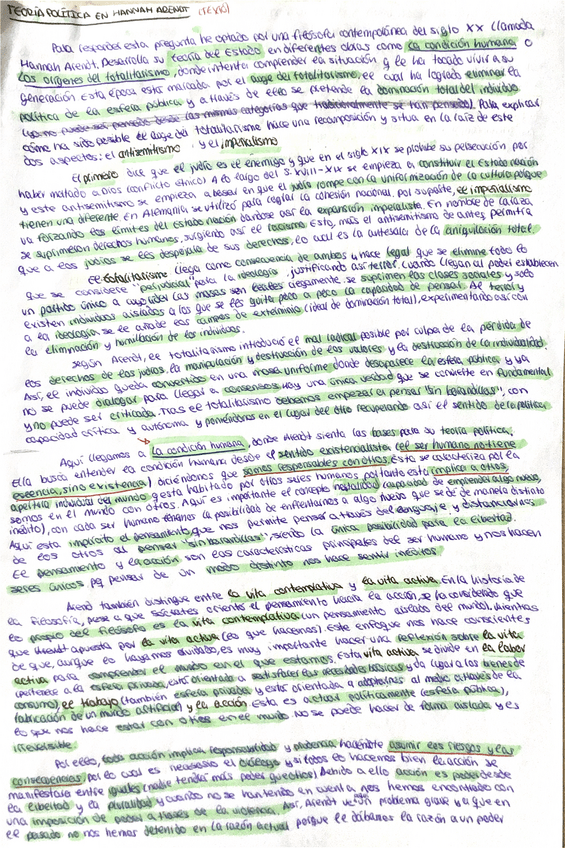 TEORÍA POLÍTICA EN HANNAH ARENDT (TEXTO)
Para responder esta pregunta he optado por una filósofa contemporánea del siglo XX llamada
Hannah Arendt. Desarrolla su teoría del Estado en diferentes obras como La condición humana o
Los orígenes del totalitarismo, donde intenta comprender la situación q le ha tocado vivir a su
generación. Esta época está marcada por el auge del totalitarismo, el cual ha logrado eliminar la
política de la esfera pública y a través de ello se pretende la dominación total del individuo
Para explicar
cómo ha sido posible el auge del totalitarismo hace una recomposición y sitúa en la raíz de este
dos aspectos: el antisemitismo y el imperialismo
El primero dice que el judío es el enemigo y que en el siglo XIX se prohibe su persecución por
haber matado a Dios (conflicto étnico). A lo largo del S. XVIII-XIX se empieza a constituir el Estado nación
y este antisemitismo se empieza a basar en que el judío rompe con la uniformización de la cultura porque
tienen una diferente. En Alemania se utilizó para lograr la cohesión nacional. Por su parte, el imperialismo
va forzando los límites del Estado nación dándose así la expansión imperialista. En nombre de la raza
se suprimieron derechos humanos, surgiendo así el racismo. Esto, más el antisemitismo de antes, permitirá
que a los judíos se les despoje de sus derechos, lo cual es la antesala de la aniquilación total.
El totalitarismo llega como consecuencia de ambos y hace legal que se elimine todo lo
que se considere "perjudicial" para la ideología, justificando así terror. Cuando llegan al poder establecen
un partido único a cual las masas son leales ciegamente, se suprimen las clases sociales y solo
existen individuos aislados a los que se les quita poco a poco la capacidad de pensar. Al terror y
a la ideología, se le añade los campos de exterminio (ideal de dominación total), experimentando así con
la eliminación y humillación de los individuos.
Según Arendt, el totalitarismo introdujo el mal radical posible por culpa de la pérdida de
los derechos de los judíos, la manipulación y destrucción de los valores y la destrucción de la individualidad.
Así, el individuo queda convertido en una masa uniforme donde desaparece la esfera pública y ya
no se puede dialogar para llegar a consensos. Hay una única verdad que se convierte en fundamental
y no puede ser criticada. Tras el totalitarismo debemos empezar el pensar "sin barandillas", con
capacidad crítica y autónoma y poniéndonos en el lugar del otro recuperando así el sentido de la política.
Aquí llegamos a La condición humana, donde Arendt sienta las bases para su teoría política.
Ella busca entender la condición humana desde el sentido existencialista (el ser humano no tiene
esencia, sino existencia) diciéndonos que somos responsables con otros. Esta se caracteriza por la
apertura individual del mundo q está habitado por otros seres humanos, por tanto esta implica a otros,
somos en el mundo con otros. Aquí es importante el concepto natalidad (capacidad de emprender algo nuevo,
inédito), con cada ser humano la posibilidad de enfrentarnos a algo nuevo que se dé de manera distinta
Aquí está implícito el pensamiento, que nos permite pensar a través del lenguaje, y distanciarnos
de los otros al pensar "sin barandillas", siendo la única posibilidad para la libertad.
El pensamiento y la acción son las características principales del ser humano y nos hacen
seres únicos pq pensar de un modo distinto nos hace sentir inéditos
Arend también distingue entre la vita contemplativa y la vita activa. En la historia de
la filosofía, pese a que Sócrates orientó el pensamiento hacia la acción, se ha considerado que
lo propio del filósofo es la vita contemplativa, un pensamiento aislado del mundo, mientras
que Arendt apuesta por la vita activa (lo que hacemos). Este enfoque nos hace conscientes
de que, aunque lo hayamos olvidado, es muy importante hacer una reflexión sobre la vita
activa para comprender el mundo en el que estamos. Esta vita activa se divide en la labor
(pertenece a la esfera privada, está orientada a satisfacer las necesidades básicas y da lugar a los bienes de
consumo), el trabajo (también esfera privada y está orientada a adaptarnos al medio a través de la
fabricación de un mundo artificial) y la acción. Esta es actuar políticamente (esfera pública),
lo que nos hace estar con otros en el mundo. No se puede hacer de forma aislada y es
irreversible.
Por ello, toda acción implica responsabilidad y prudencia, asumir los riesgos y las
consecuencias, por lo cual es necesario el diálogo y si todos lo hacemos bien la acción se
manifestará entre iguales (nadie tendrá más poder que otros) debido a ello acción es poder desde
la libertad y la pluralidad y cuando no se han tenido en cuenta nos hemos encontrado con
una imposición de poder a través de la violencia. Así, Arendt ve un problema grave ya que en
el pasado no nos hemos detenido en la razón actual porque le dábamos la razón a un poder